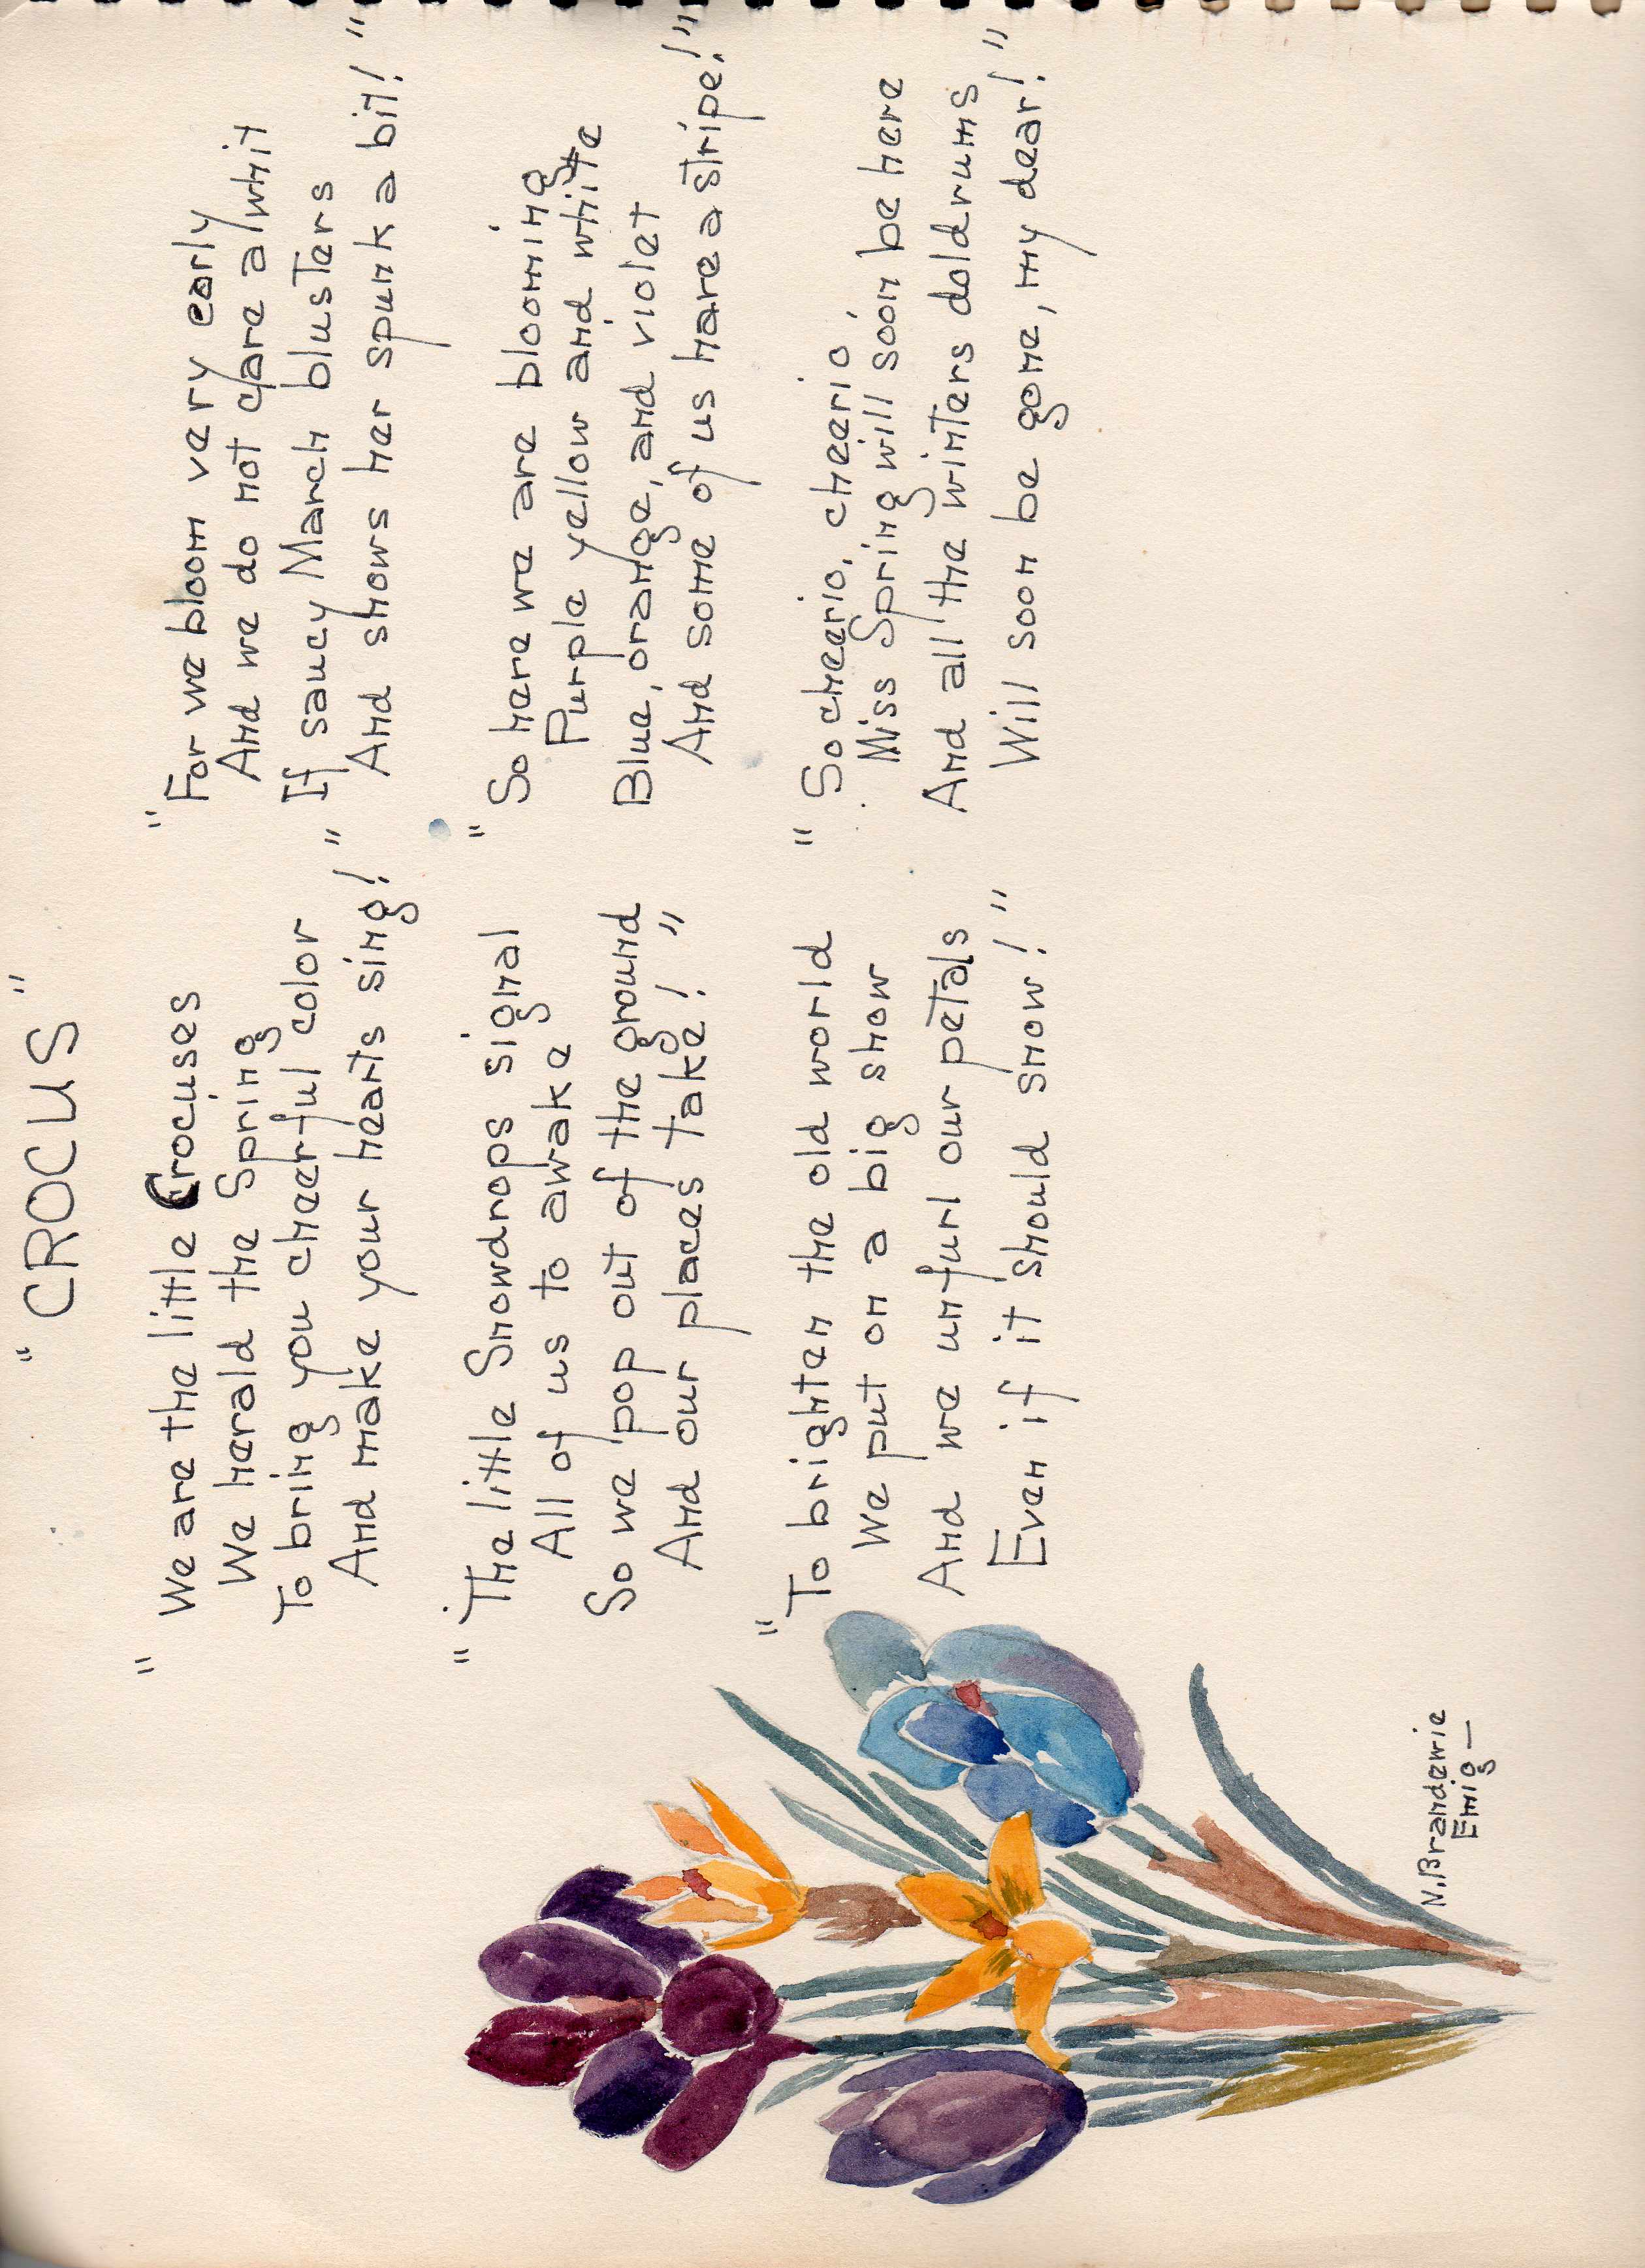 "CROCUS"
"We are the little Crocuses
We herald the Spring
To bring you cheerful color
And make your hearts sing!"
"The little Snowdrops signal
All of us to awake
So we pop out of the ground
And our places take!"
"To brighten the old world
We put on a big show
And we unfurl our petals
Even if it should snow!"
"For we bloom very early
And we do not care a whit
If saucy March blusters
And shows her spunk a bit!"
"So here we are blooming
Purple yellow and white
Blue, orange, and violet
And some of us have a stripe!"
"So cheerio, cheerio,
Miss Spring will soon be here
And all the winters doldrums
Will soon be gone, my dear!"
N. Branderie
Emig—